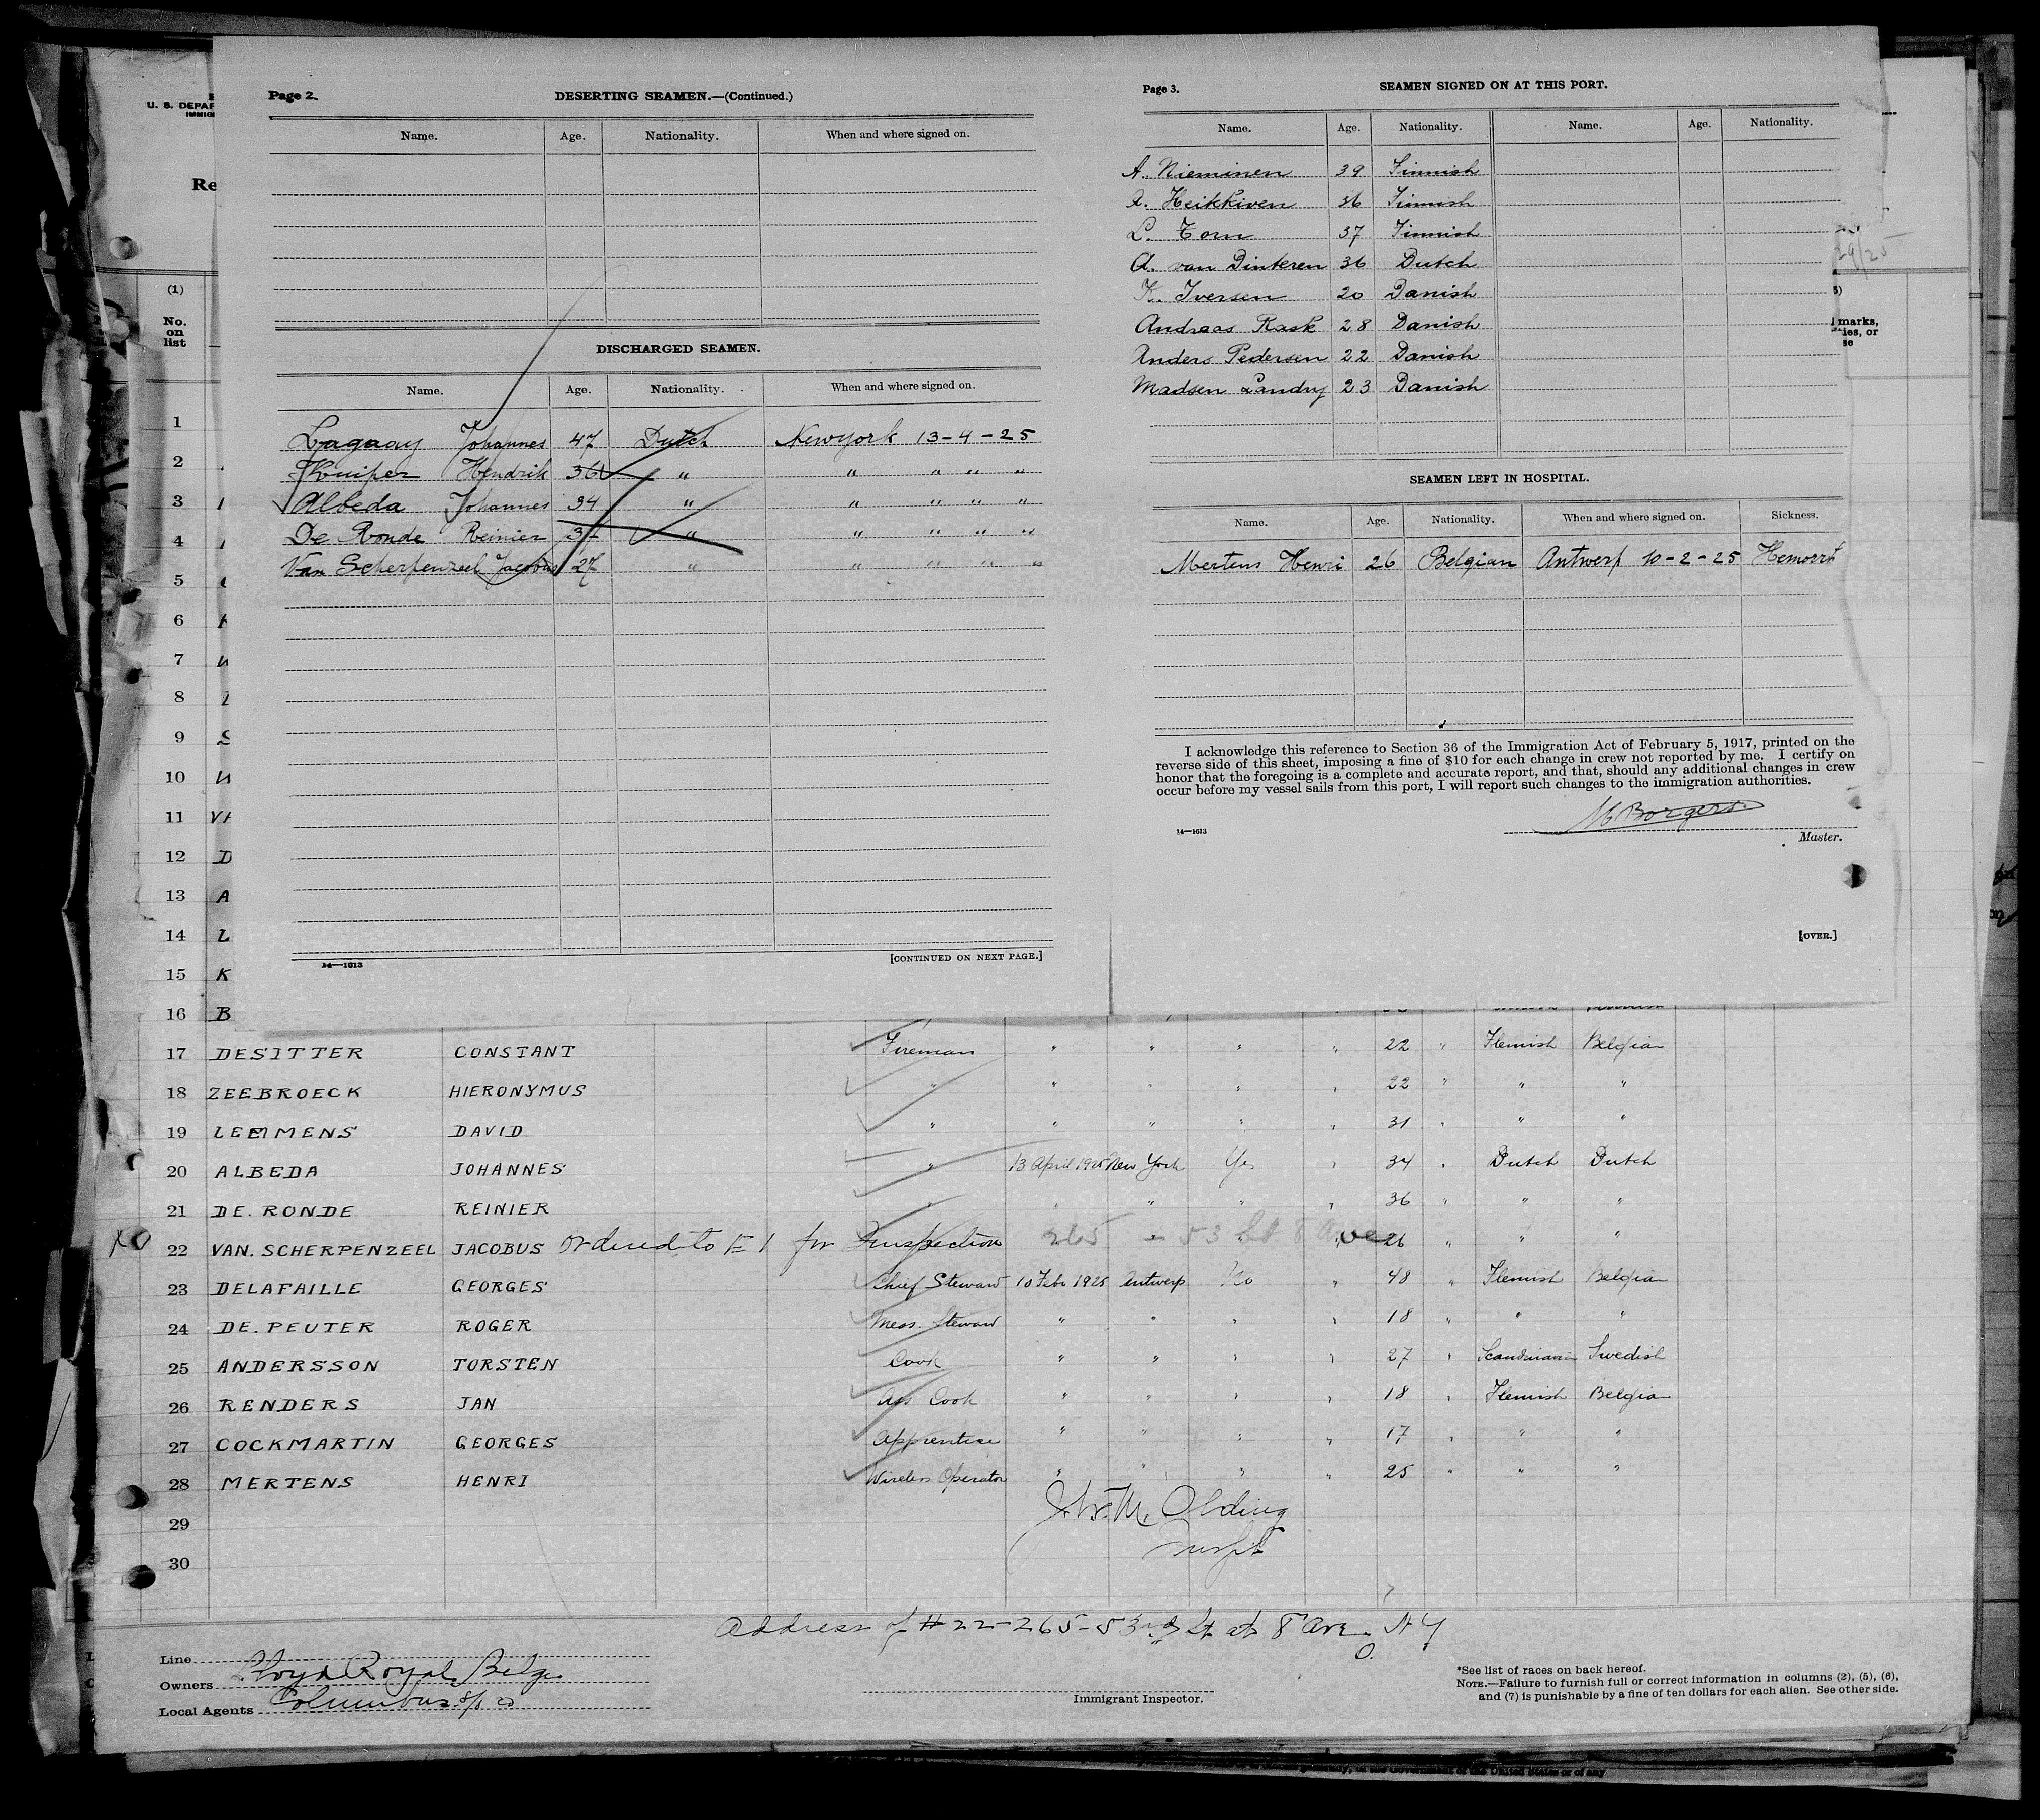 Page 2.
DESERTING SEAMEN.—(Continued.)
Name. Age. Nationality. When and where signed on.
DISCHARGED SEAMEN.
Name. Age. Nationality. When and where signed on.
Lagaay Johannes 47 Dutch New york 13-9-25
Kuiper Hendrik 36 " " " " "
Albeda Johannes 34 " " " " "
De Ronde Reinier " " " " "
Van Scherpenzeel Jacobus 27 " " " " "
14—1613
[CONTINUED ON NEXT PAGE.]
Page 3.
SEAMEN SIGNED ON AT THIS PORT.
Name. Age. Nationality. Name. Age. Nationality.
A. Nieminen 39 Finnish
A. Heikkiven 36 Finnish
L. Torn 37 Finnish
A. van Dinteren 36 Dutch
K. Iversen 20 Danish
Andreas Rask 28 Danish
Anders Pedersen 22 Danish
Madsen Landry 23 Danish
SEAMEN LEFT IN HOSPITAL.
Name. Age. Nationality. When and where signed on. Sickness.
Mertens Henri 26 Belgian Antwerp 10-2-25
I acknowledge this reference to Section 36 of the Immigration Act of February 5, 1917, printed on the
reverse side of this sheet, imposing a fine of $10 for each change in crew not reported by me. I certify on
honor that the foregoing is a complete and accurate report, and that, should any additional changes in crew
occur before my vessel sails from this port, I will report such changes to the immigration authorities.
M Borgers
Master.
14—1613
[OVER.]
U. S. DEPAR
IMMIG
Re
(1)
No.
on
list
29/25
marks,
ies, or
se
1
2
3
4
5
6 K
7 W
8
9 S
10 W
11 VA
12 D
13 A
14 L
15 K
16 B
17 DESITTER CONSTANT Fireman " " " " 22 " Flemish Belgian
18 ZEEBROECK HIERONYMUS " " " " " 22 " " "
19 LEEMMENS DAVID " " " " " 31 " " "
20 ALBEDA JOHANNES " 13 April 1925 New York Yes " 34 " Dutch Dutch
21 DE. RONDE REINIER " " " " " 36 " " "
22 VAN. SCHERPENZEEL JACOBUS Ordered to E I for Inspection 265 - 53 St 8 Ave 26 " " "
23 DELAFAILLE GEORGES Chief Steward 10 Febr 1925 Antwerp No " 48 " Flemish Belgian
24 DE. PEUTER ROGER Mess. Steward " " " " 18 " " "
25 ANDERSSON TORSTEN Cook " " " " 27 " Scandinavian Swedish
26 RENDERS JAN Ass Cook " " " " 18 " Flemish Belgian
27 COCKMARTIN GEORGES Apprentice " " " " 17 " " "
28 MERTENS HENRI Wireless Operator " " " " 25 " " "
29
30
Address of #22-265-53rd St at 8 Ave. N Y
Line
Owners Lloyd Royal Belge
Local Agents Columbus S/S Co
Immigrant Inspector.
*See list of races on back hereof.
NOTE.—Failure to furnish full or correct information in columns (2), (5), (6),
and (7) is punishable by a fine of ten dollars for each alien. See other side.